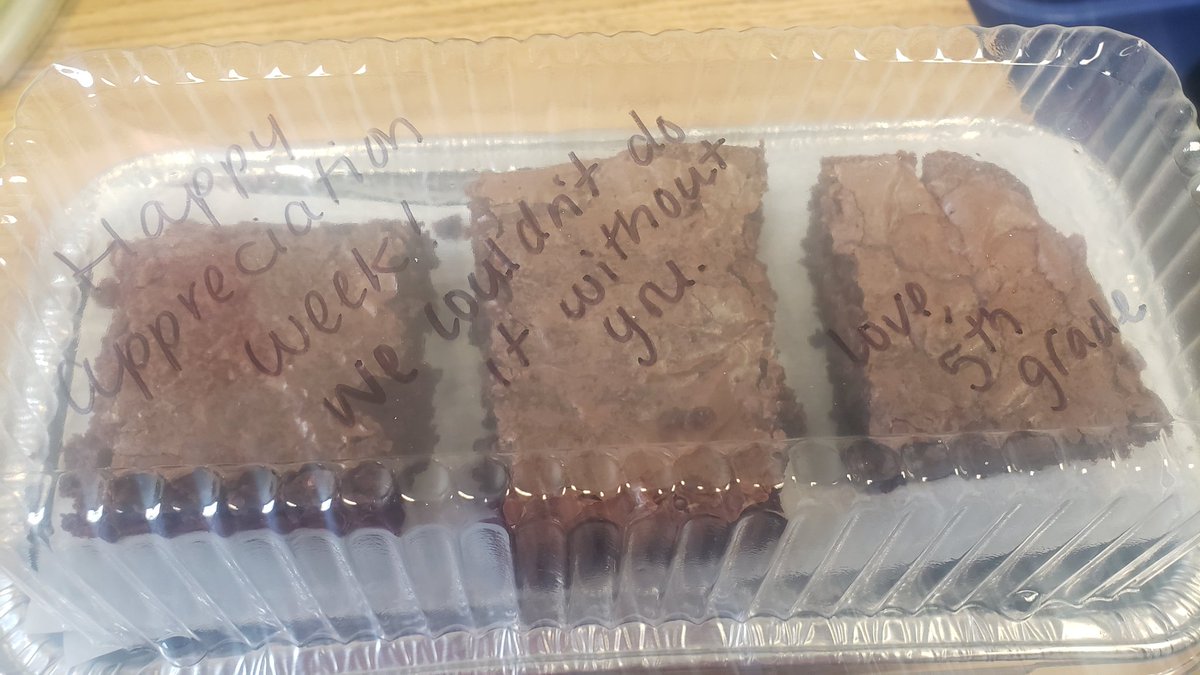 Happy
appreciation
week!
We couldn't do
it without
you.
Love,
5th
grade